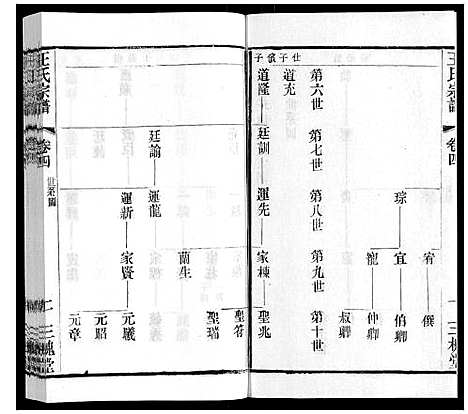 王氏宗譜
卷四
三槐堂
宥
僎
宜
伯卿
琮
寵
仲卿
叔卿
第六世
第七世
第八世
第九世
第十世
道充
道隆
廷訓
運先
家棟
聖兆
聖答
聖瑞
蘭生
廷諭
運龍
運新
家賢
元羲
元昭
元章
王氏宗譜
卷四
世系圖
三槐堂